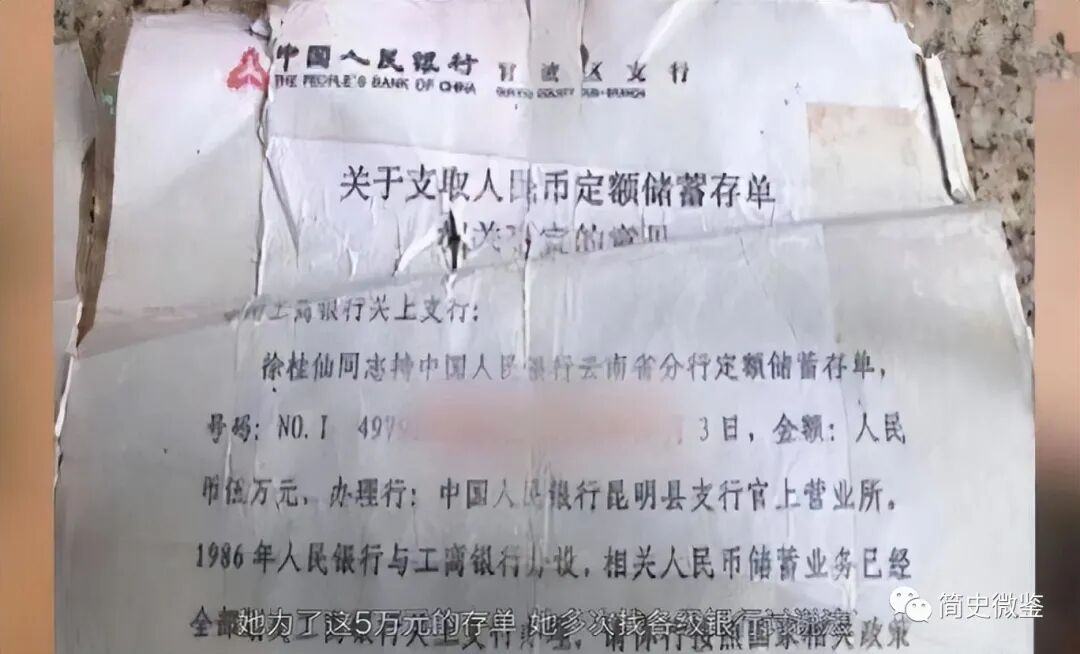 中国人民银行 官渡区支行
THE PEOPLE'S BANK OF CHINA
关于支取人民币定额储蓄存单
相关 的意见
工商银行关上支行：
徐桂仙同志持中国人民银行云南省分行定额储蓄存单，
号码：NO.I 497 3日，金额：人民
币伍万元，办理行：中国人民银行昆明县支行官上营业所。
1986年人民银行与工商银行分设，相关人民币储蓄业务已经
全部 工商银行关上支行 请你行按照国家相关政策
她为了这5万元的存单 她多次找各级银行
简史微鉴